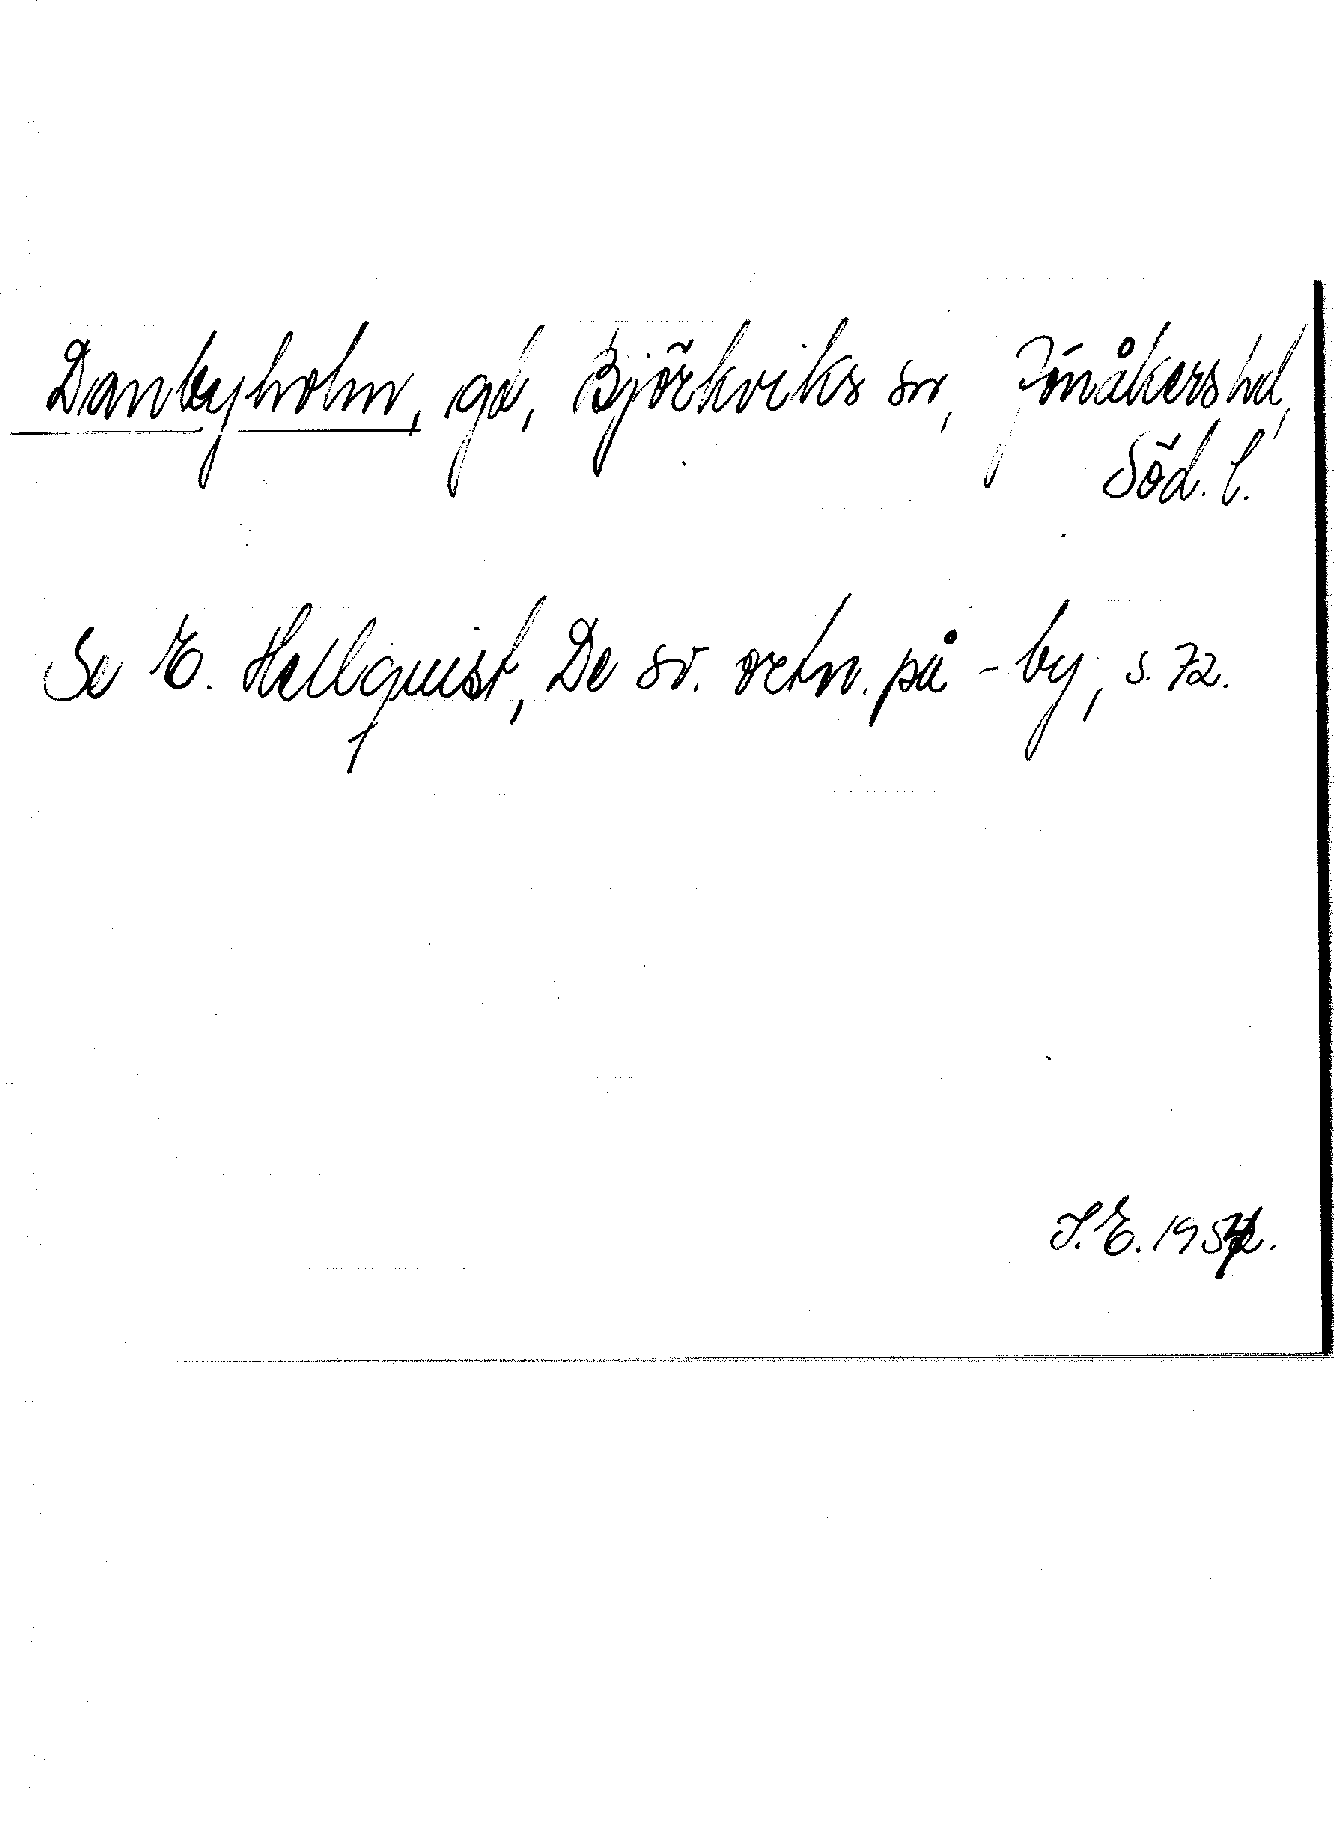 Danbyholm, gd, Björkviks sn, Jönåkers hd,
Söd. l.
Se E. Hellquist, De sv. ortn. på -by, s. 72.
I. E. 195